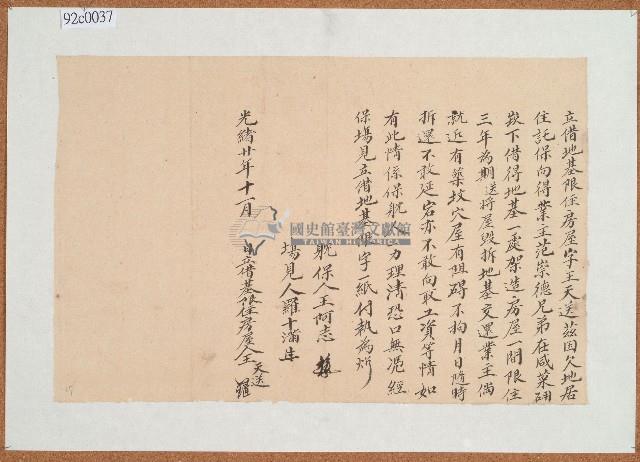 92c0037
立借地基限住房屋字王天送茲因欠地居
住託保向得業主范崇德兄弟在咸菜硼
崁下借得地基一處架造房屋一間限住
三年為期送將屋毀拆地基交還業主倘
就近有築坟穴屋有阻碍不拘月日隨時
拆還不敢延宕亦不敢向取工資等情如
有此情係保躭人力理清恐口無憑經
保場見立借地基限字一紙付執為炤
躭保人王阿志
場見人羅十滿
光緒廿年十一月 日立借基限住房屋人王天送
國史館臺灣文獻館
TAIWAN HISTORICA